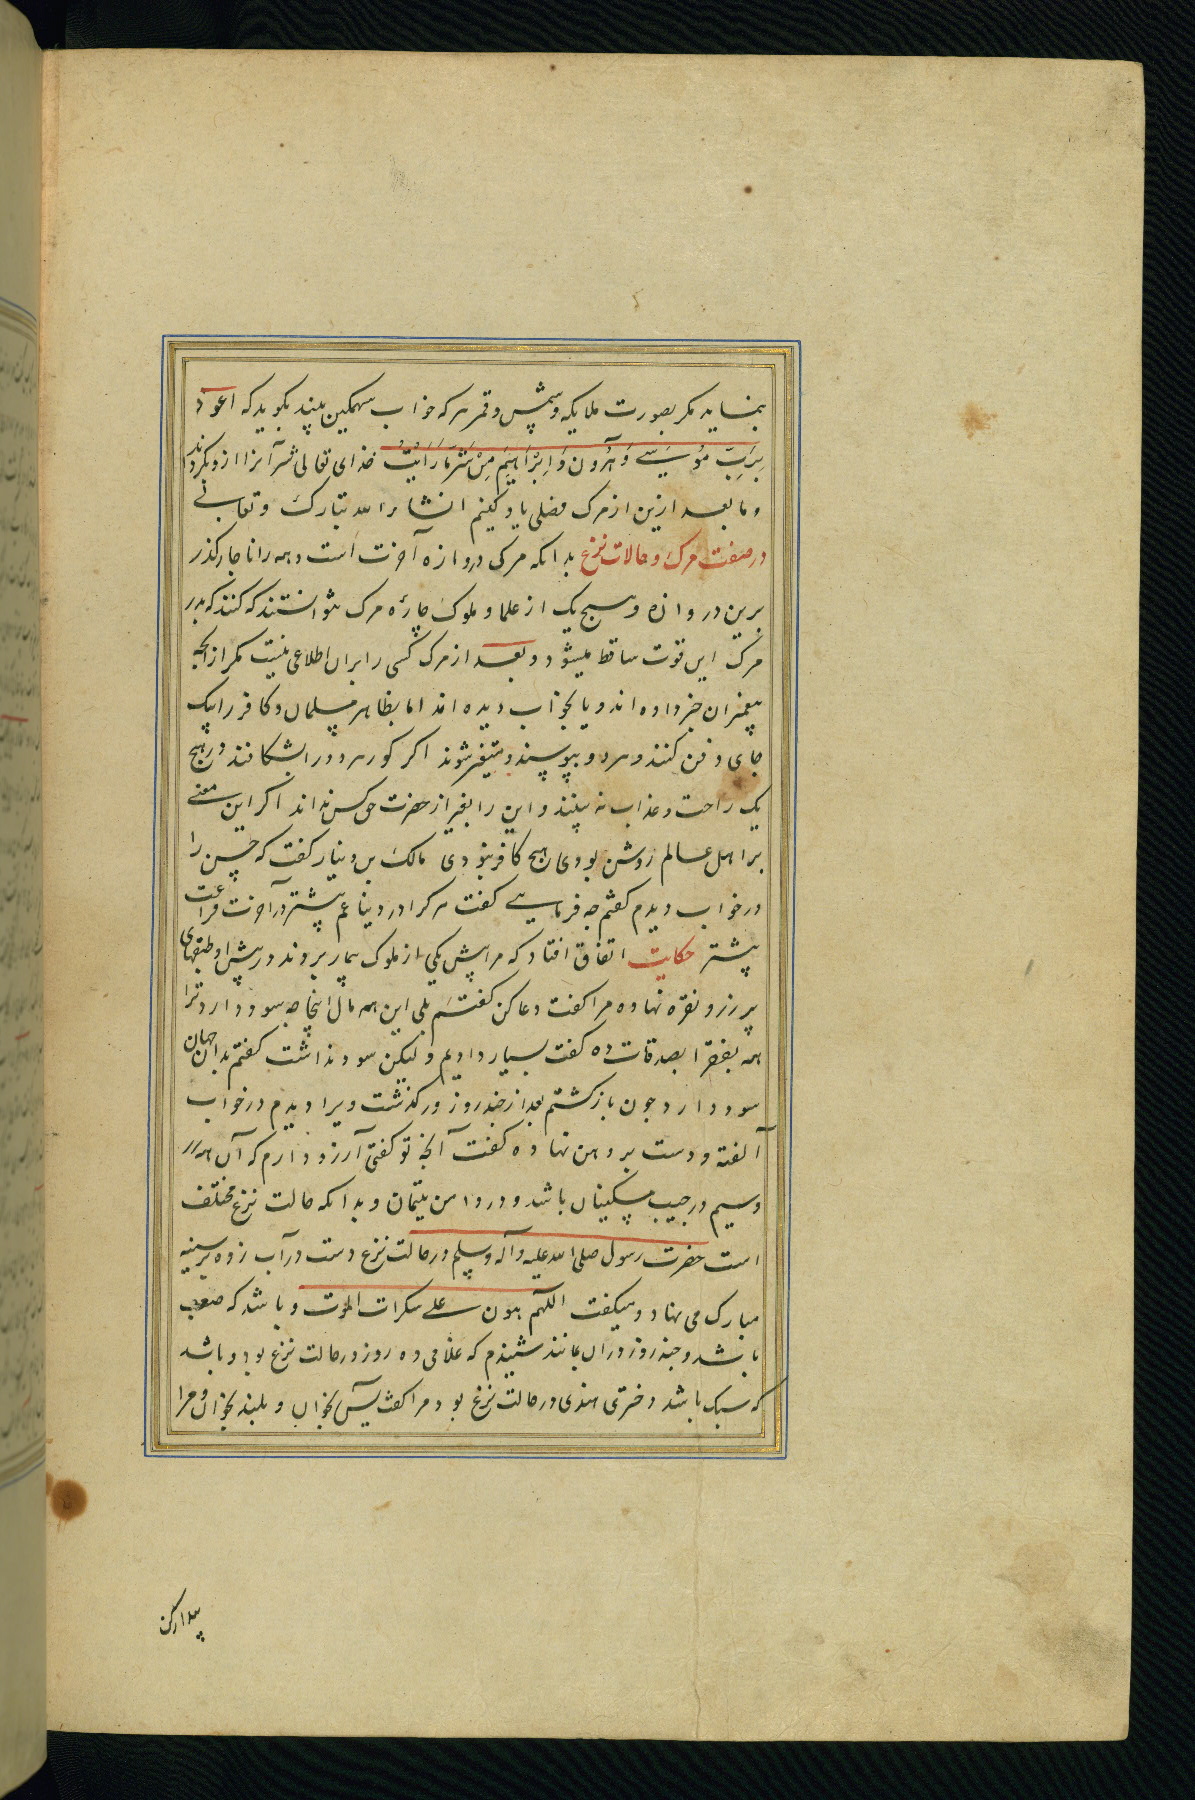 بنماید مکر بصورت ملایکه وشمس وقمر هرکه خواب سهمکین بیند بکوید که اعوذ
برب موسی و هرون و ابراهیم من شر ما رایت خدای تعالی شر آنرا ازو بکرداند
وما بعد ازین از مرک فصلی یاد کنیم انشاء الله تبارک وتعالی
در صفت مرک وحالات نزع بدانکه مرک دروازه آخرت است وهمه را ناچار کذر
برین دروازه وهیچ یک از علما وملوک چاره مرک نتوانستند که کنند که بدر
مرک این قوت ساقط میشود وبعد از مرک کسی را بران اطلاعی نیست مکر ازانچه
پیغمبران خبر داده اند ویا بخواب دیده اند اما بظاهر مسلمان وکافر را بیک
جای دفن کنند وهردو بپوسند ومتغیر شوند اکر کور هردو را بشکافند در هیچ
یک راحت وعذاب نه بینند واین را بغیر از حضرت حق کس نداند اکر این معنی
بر اهل عالم روشن بودی هیچ کافر نبودی مالک بن دینار کفت که حسن را
در خواب دیدم کفتم چه فرمایی کفت هرکرا در دنیا غم پیشتر در آخرت فراغت
پیشتر حکایت اتفاق افتاد که مرا پیش یکی از ملوک بیمار بردند در پیش او طبقهای
پر زر ونقره نهاده مرا کفت دعا کن کفتم بلی این همه مال اینجا چه سود دارد ترا
همه بفقرا بصدقات ده کفت بسیار دادیم ولیکن سود نداشت کفتم بدان جهان
سود دارد چون بازکشتم بعد از چند روز درکذشت ویرا دیدم در خواب
آلفته ودست بر دهن نهاده کفت آنچه تو کفتی آرزو دارم که آن همه زر
وسیم در جیب مسکینان باشد ودر دامن یتیمان وبدانکه حالت نزع مختلف
است حضرت رسول صلی الله علیه وآله وسلم در حالت نزع دست در آب زده بر سینه
مبارک می نهاد ومیکفت اللهم هون علی سکرات الموت وباشد که صعب
باشد وچند روز در آن بمانند شنیدم که غلامی ده روز در حالت نزع بود وباشد
که سبک باشد دختری هندی در حالت نزع بود مرا کفت یس بخوان وبلند بخوان ومرا
بیدار کن